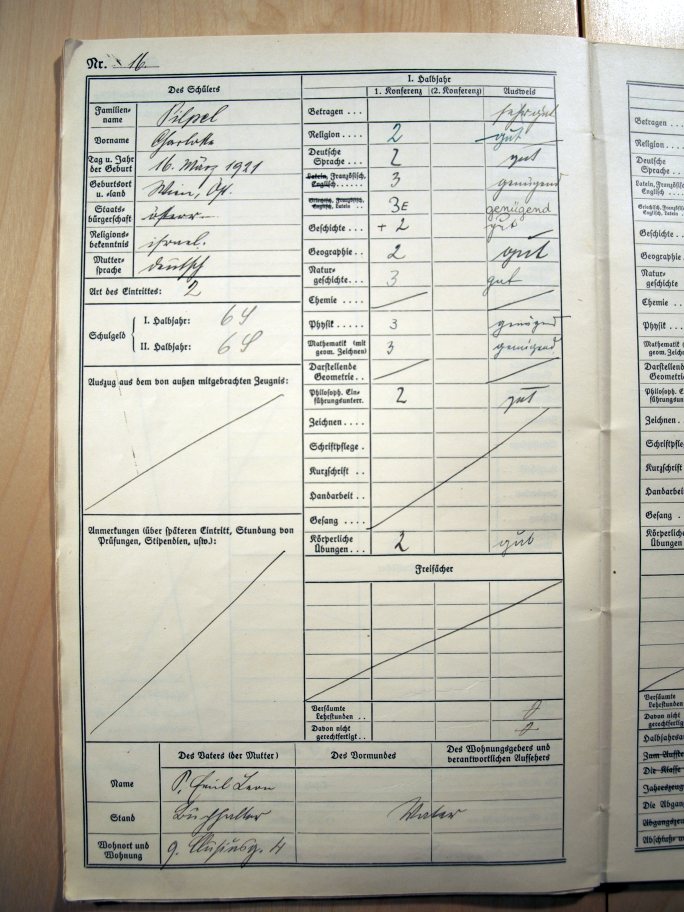 Nr. 16.
Des Schülers
Familien-
name
Pilpel
Vorname
Charlotte
Tag u. Jahr
der Geburt
16. März 1921
Geburtsort
u. =land
Wien, Öst.
Staats-
bürgerschaft
österr.
Religions-
bekenntnis
israel.
Mutter-
sprache
deutsch
Art des Eintrittes: 2
Schulgeld
I. Halbjahr: 64
II. Halbjahr: 64
Auszug aus dem von außen mitgebrachten Zeugnis:
Anmerkungen (über späteren Eintritt, Stundung von
Prüfungen, Stipendien, usw.):
I. Halbjahr
1. Konferenz (2. Konferenz) Ausweis
Betragen .... sehr gut
Religion .... 2 gut
Deutsche
Sprache ... 2 gut
Latein, Französisch,
Englisch...... 3 genügend
Griechisch, Französisch,
Englisch, Latein .. 3E genügend
Geschichte ... + 2 gut
Geographie .. 2 gut
Natur-
geschichte... 3 gut
Chemie ....
Physik ...... 3 genügend
Mathematik (mit
geom. Zeichnen) 3 genügend
Darstellende
Geometrie..
Philosoph. Ein-
führungsunterr. 2 gut
Zeichnen ....
Schriftpflege .
Kurzschrift ..
Handarbeit ..
Gesang ....
Körperliche
Übungen ... 2 gut
Freifächer
Versäumte
Lehrstunden ..
Davon nicht
gerechtfertigt..
Des Vaters (der Mutter) Des Vormundes Des Wohnungsgebers und
verantwortlichen Aufsehers
Name P. Emil Leon
Stand Buchhalter Vater
Wohnort und
Wohnung
9. Clusiusg. 4
Betragen ....
Religion ....
Deutsche
Sprache ...
Latein, Französisch,
Englisch......
Griechisch, Französisch,
Englisch, Latein ..
Geschichte ..
Geographie ..
Natur-
geschichte
Chemie ....
Physik ....
Mathematik (mit
geom. Zeichn
Darstellende
Geometrie
Philosoph. Ein-
führungsun
Zeichnen ...
Schriftpfleg
Kurzschrift
Handarbeit
Gesang ...
Körperliche
Übungen ..
Versäumte
Lehrstunden
Davon nicht
gerechtfertigt
Halbjahrsau
Zum Aufste
Die Klasse
Jahreszeug
Die Abgan
Abgangszeu
Abschluß=